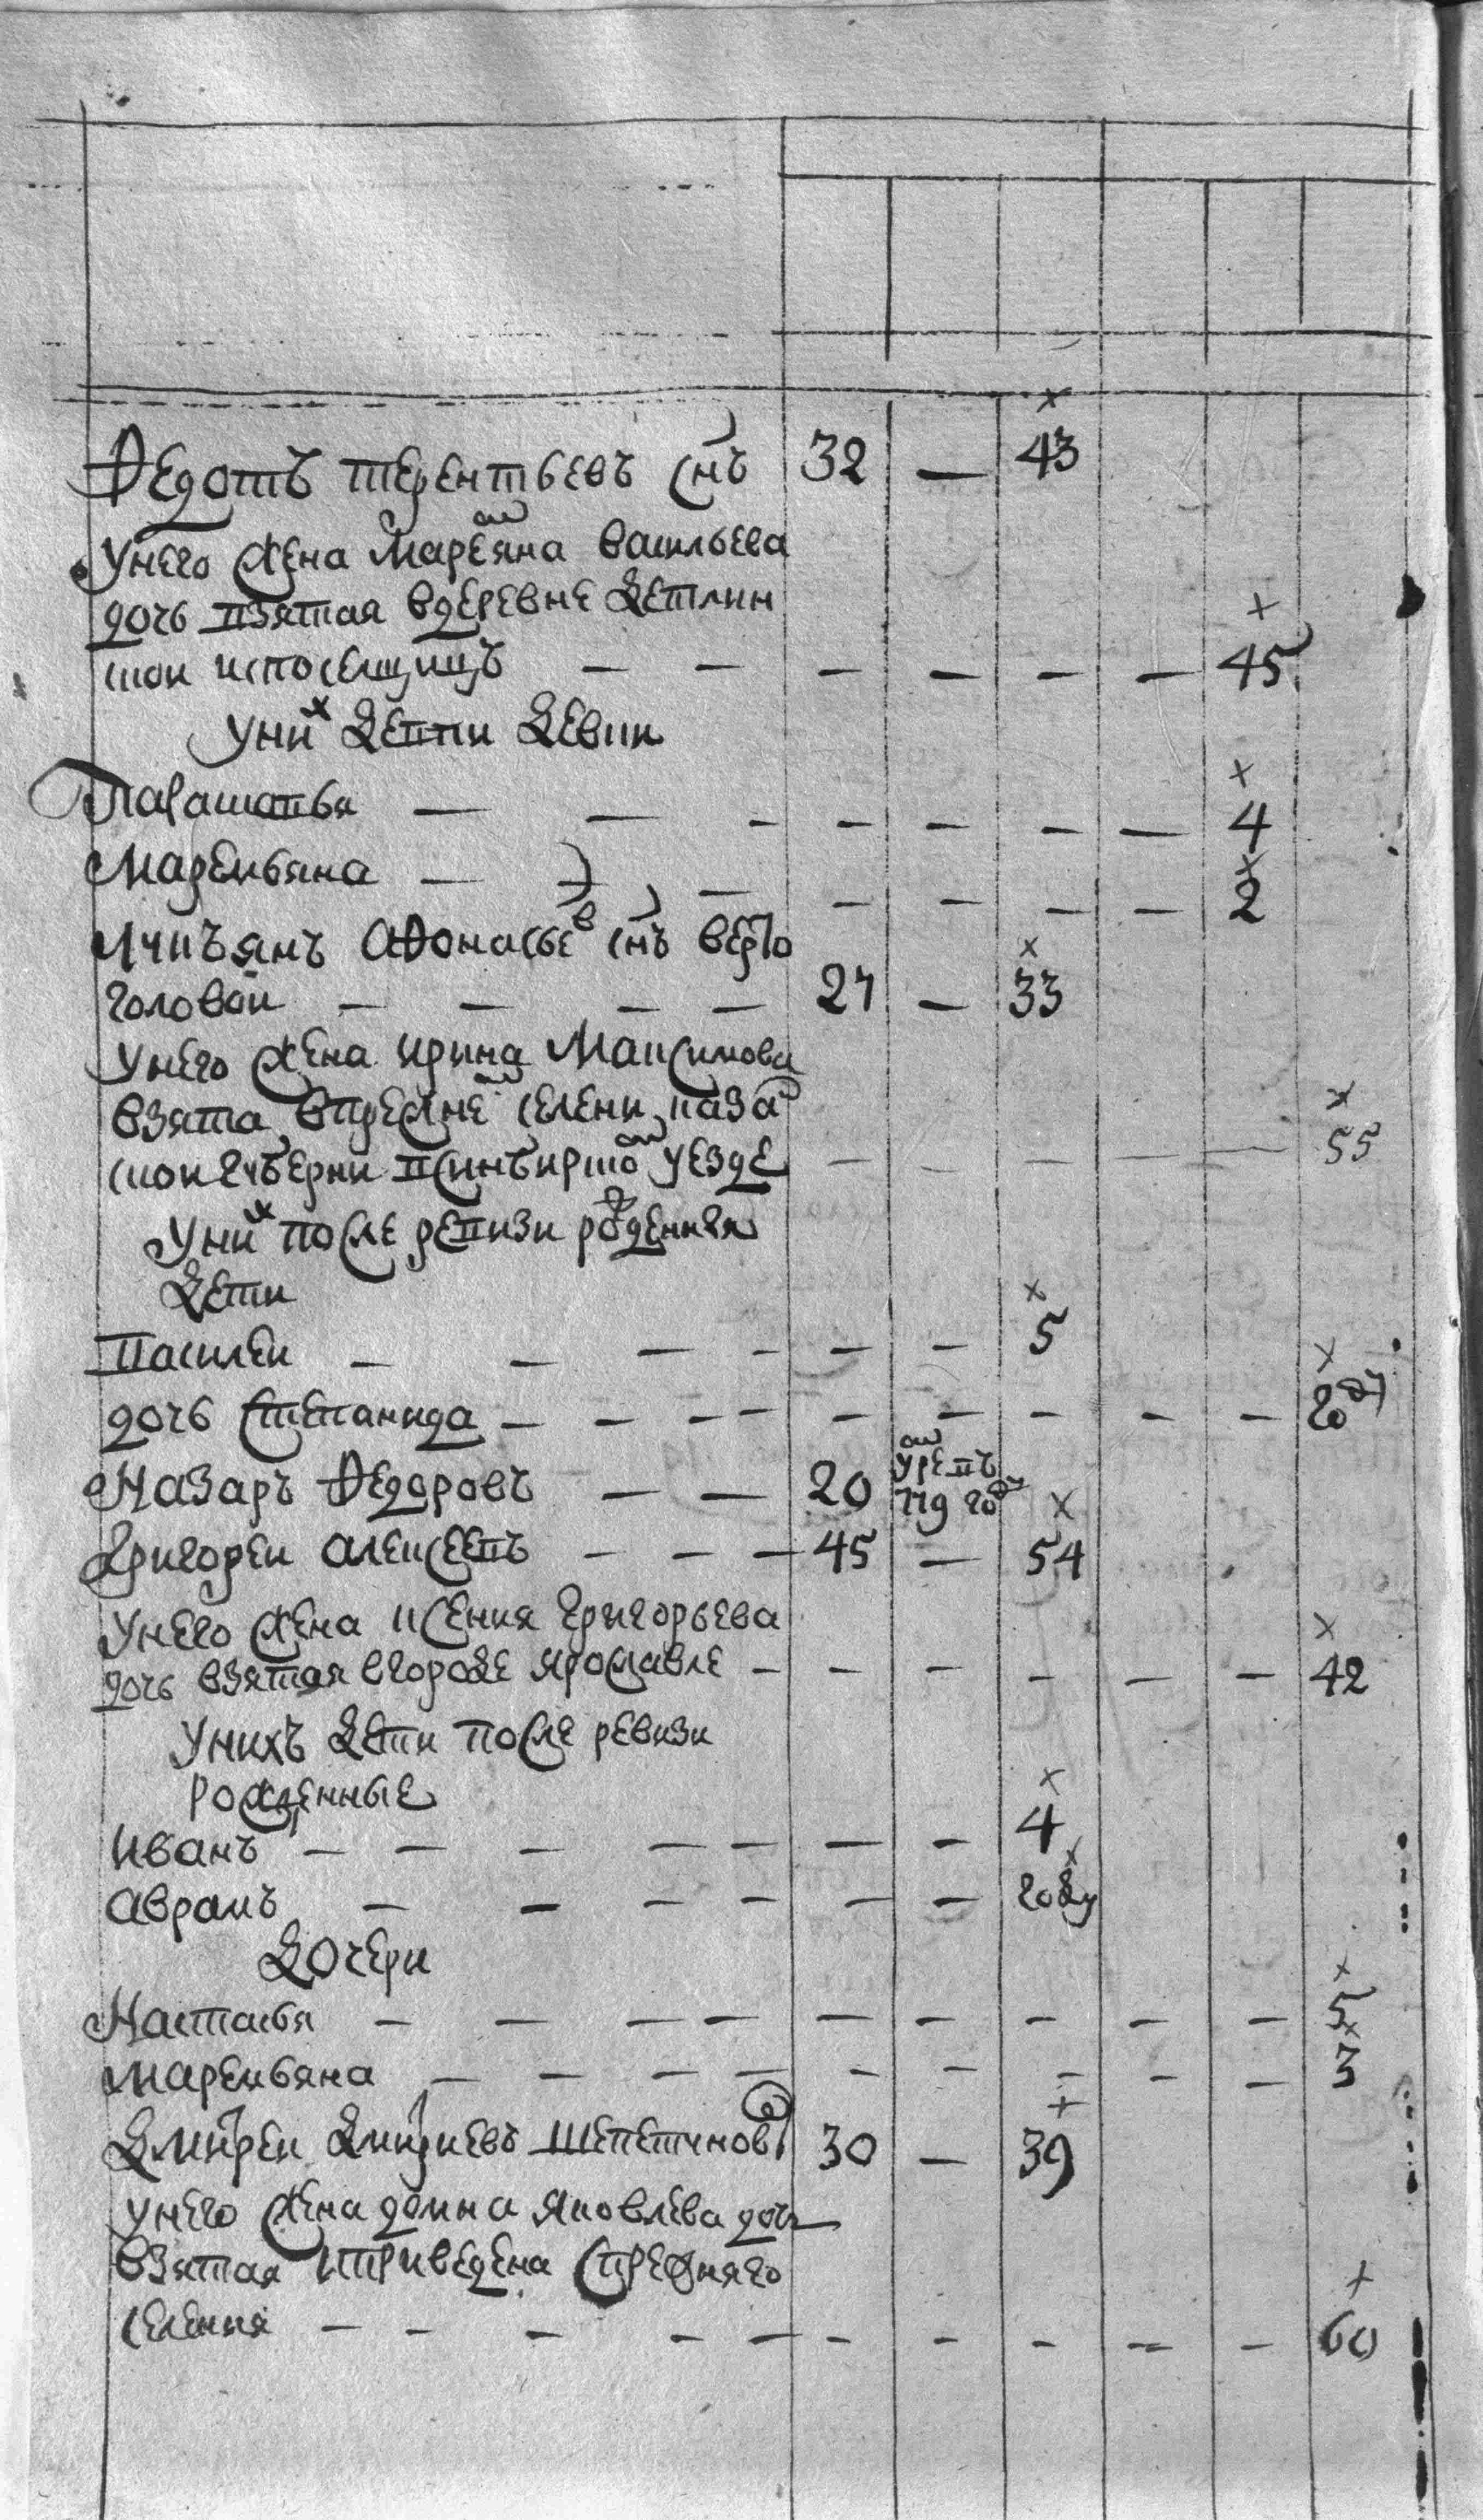 Ѳедотъ терентьевъ снъ 32 — 43
унего жена Маремяна васильева
дочь взятая вдеревне
45
Уних дети девки
Парасковья — — — — — — — 4
Маремьяна — — — — — — — 2
Лукъянъ Афонасьев снъ верто
головой — — — — 27 — 33
унего жена ирина Максимова
взята впрежне селени каза
ской губерни ксинбирско уезде — — — — — 55
Уних после ревизи рожденныя
дети
Василей — — — — — — 5
дочь степанида — — — — — — — — — году
Назаръ Ѳедоровъ — — 20 году
Григорей алексеевъ — — — 45 — 54
унего жена ксения григорьева
дочь взятая вгороде ярославле — — — — — — 42
Унихъ дети после ревизи
рожденные
иванъ — — — — — — — 4
аврамъ — — — — — — — году
дочери
Настасья — — — — — — — — — 5
маремьяна — — — — — — — — — 3
дмитрей дмитриевъ шепетиновъ 30 — 39
унего жена домна яковлева дочь
взятая ипривезена спрежняго
селения — — — — — — — — — — 60